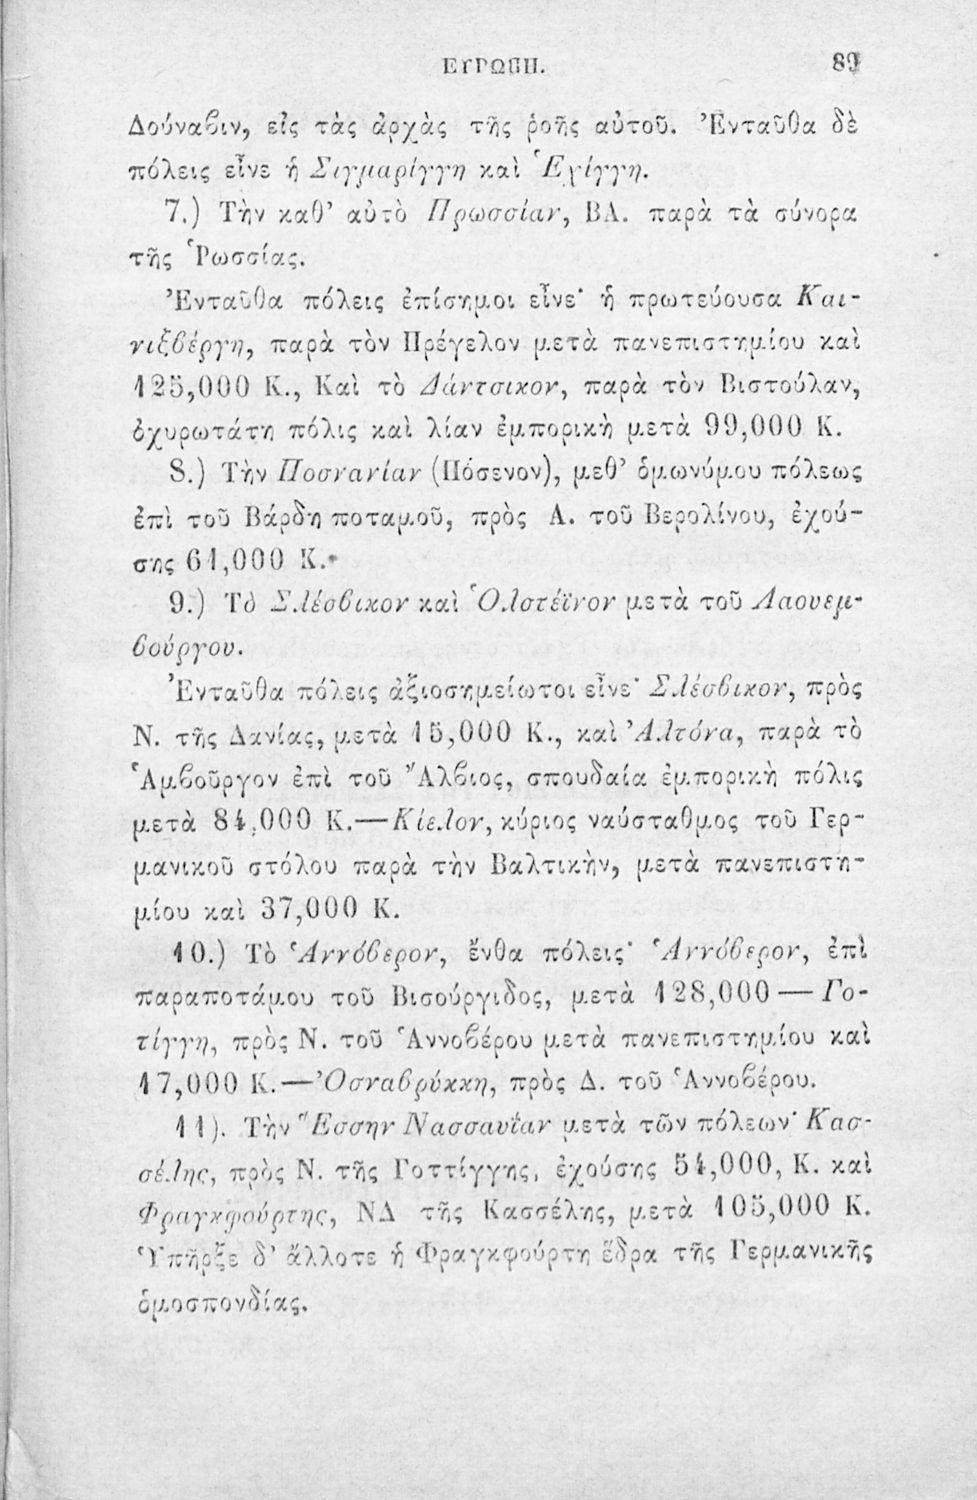 ΕΥΡΩΠΗ. 89
Δούναβιν, εἰς τὰς ἀρχὰς τῆς ῥοῆς αὐτοῦ. Ἐνταῦθα δὲ
πόλεις εἶνε ἡ Σιγμαρίγγη καὶ Ἑχίγγη.
7.) Τὴν καθ’ αὑτὸ Πρωσσίαν, ΒΑ. παρὰ τὰ σύνορα
τῆς Ῥωσσίας.
Ἐνταῦθα πόλεις ἐπίσημοι εἶνε· ἡ πρωτεύουσα Και-
νιξβέργη, παρὰ τὸν Πρέγελον μετὰ πανεπιστημίου καὶ
125,000 Κ., Καὶ τὸ Δάντσικον, παρὰ τὸν Βιστούλαν,
ὀχυρωτάτη πόλις καὶ λίαν ἐμπορικὴ μετὰ 99,000 Κ.
8.) Τὴν Ποσνανίαν (Πόσενον), μεθ’ ὁμωνύμου πόλεως
ἐπὶ τοῦ Βάρδη ποταμοῦ, πρὸς Α. τοῦ Βερολίνου, ἐχού-
σης 61,000 Κ.
9.) Τὸ Σλέσβικον καὶ Ὁλστέϊνον μετὰ τοῦ Λαουεμ-
βούργου.
Ἐνταῦθα πόλεις ἀξιοσημείωτοι εἶνε· Σλέσβικον, πρὸς
Ν. τῆς Δανίας, μετὰ 15,000 Κ., καὶ Ἀλτόνα, παρὰ τὸ
Ἁμβοῦργον ἐπὶ τοῦ Ἄλβιος, σπουδαία ἐμπορικὴ πόλις
μετὰ 84,000 Κ.—Κίελον, κύριος ναύσταθμος τοῦ Γερ-
μανικοῦ στόλου παρὰ τὴν Βαλτικὴν, μετὰ πανεπιστη-
μίου καὶ 37,000 Κ.
10.) Τὸ Ἁννόβερον, ἔνθα πόλεις· Ἁννόβερον, ἐπὶ
παραποτάμου τοῦ Βισούργιδος, μετὰ 128,000 — Γο-
τίγγη, πρὸς Ν. τοῦ Ἁννοβέρου μετὰ πανεπιστημίου καὶ
17,000 Κ.—Ὀσναβρύκκη, πρὸς Δ. τοῦ Ἁννοβέρου.
11). Τὴν Ἔσσην Νασσαυΐαν μετὰ τῶν πόλεων· Κασ-
σέλης, πρὸς Ν. τῆς Γοττίγγης, ἐχούσης 54,000, Κ. καὶ
Φραγκφούρτης, ΝΔ τῆς Κασσέλης, μετὰ 105,000 Κ.
Ὑπῆρξε δ’ ἄλλοτε ἡ Φραγκφούρτη ἕδρα τῆς Γερμανικῆς
ὁμοσπονδίας.